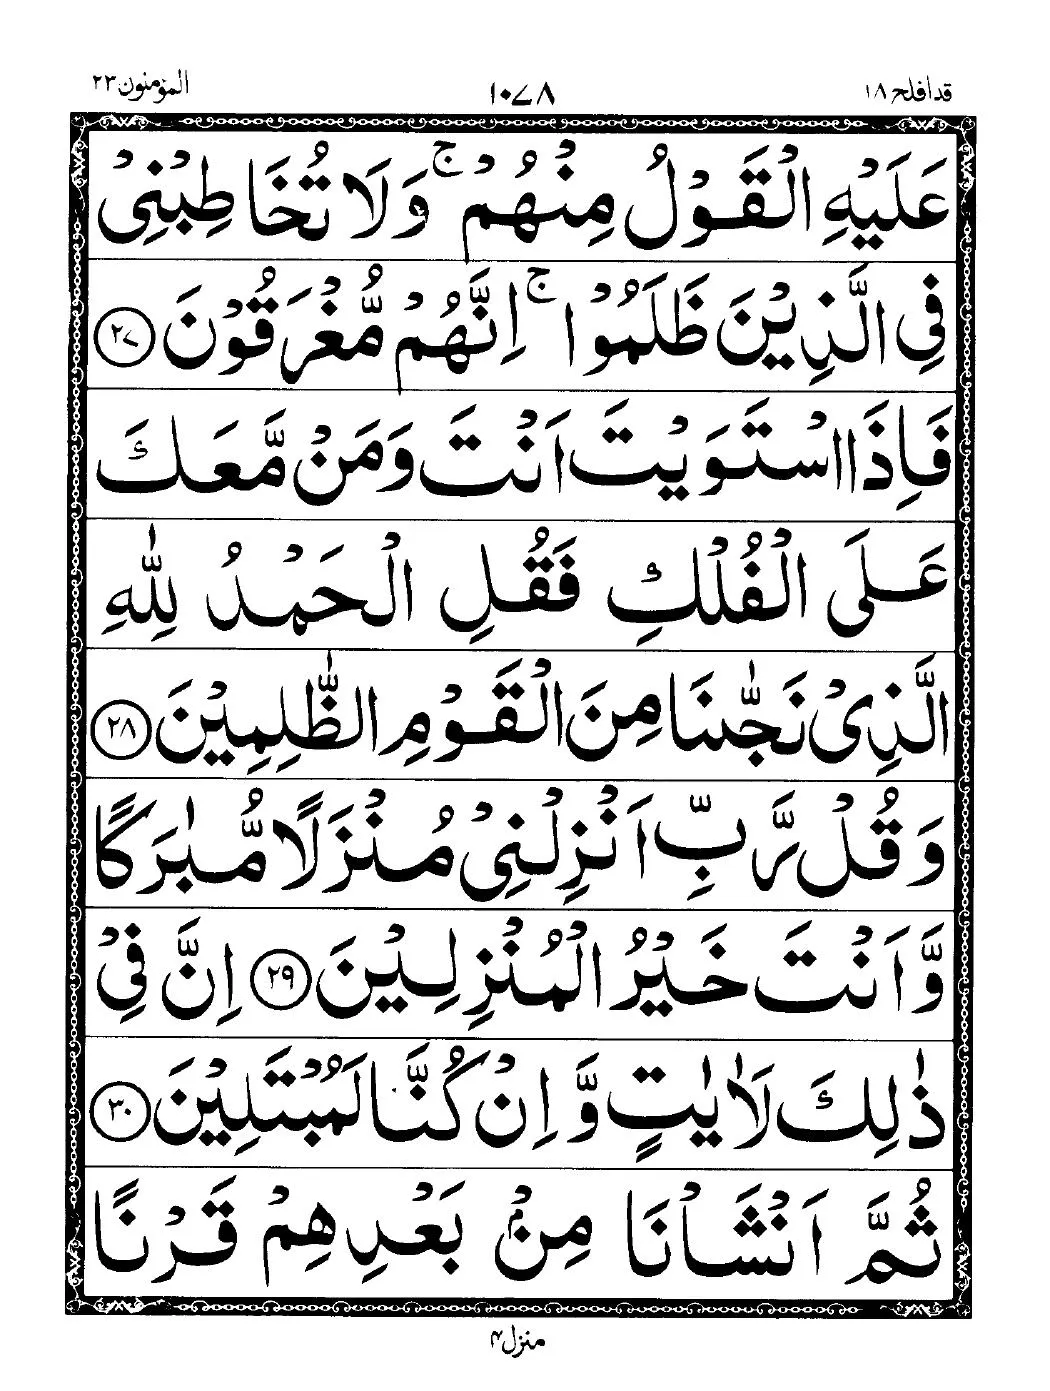 قد افلح ۱۸ ۱۰۷۸ المؤمنون ۲۳
عَلَيْهِ الْقَوْلُ مِنْهُمْ ۚ وَلَا تُخَاطِبْنِيْ
فِي الَّذِيْنَ ظَلَمُوْا ۚ اِنَّهُمْ مُّغْرَقُوْنَ ۲۷
فَاِذَا اسْتَوَيْتَ اَنْتَ وَمَنْ مَّعَكَ
عَلَى الْفُلْكِ فَقُلِ الْحَمْدُ لِلّٰهِ
الَّذِيْ نَجّٰىنَا مِنَ الْقَوْمِ الظّٰلِمِيْنَ ۲۸
وَقُلْ رَّبِّ اَنْزِلْنِيْ مُنْزَلًا مُّبٰرَكًا
وَّاَنْتَ خَيْرُ الْمُنْزِلِيْنَ ۲۹ اِنَّ فِيْ
ذٰلِكَ لَاٰيٰتٍ وَّاِنْ كُنَّا لَمُبْتَلِيْنَ ۳۰
ثُمَّ اَنْشَاْنَا مِنْۢ بَعْدِهِمْ قَرْنًا
منزل ۴